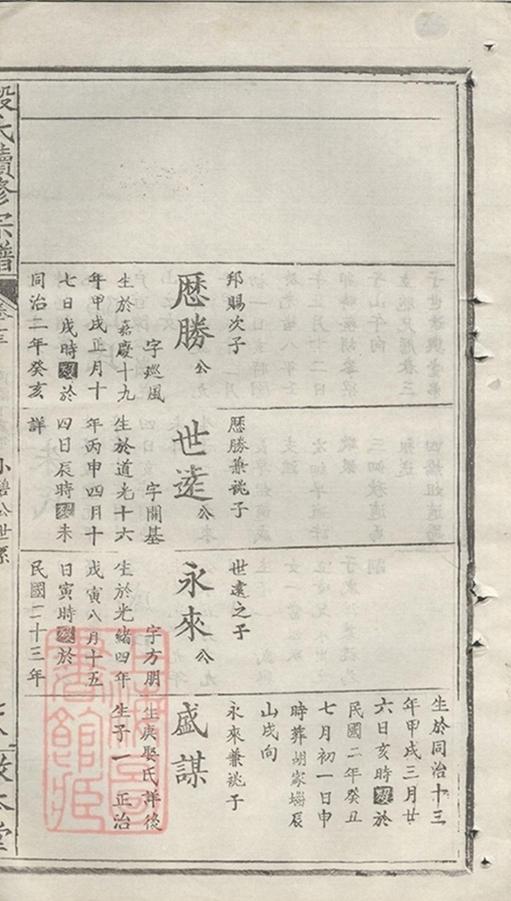 邦賜次子
歷勝公
字巡風
生於嘉慶十九
年甲戌正月十
七日戌時殁於
同治二年癸亥
歷勝兼祧子
世遠公
字開基
生於道光十六
年丙申四月十
四日辰時殁未
詳
世遠之子
永來公
字方朋
生於光緒四年
戊寅八月十五
日寅時殁於
民國二十三年
生於同治十三
年甲戌三月廿
六日亥時殁於
民國二年癸丑
七月初一日申
時葬胡家塅辰
山戌向
永來兼祧子
盛謀
生庚娶氏詳後
生子一 正治
段氏續修宗譜
卷十三
公世系